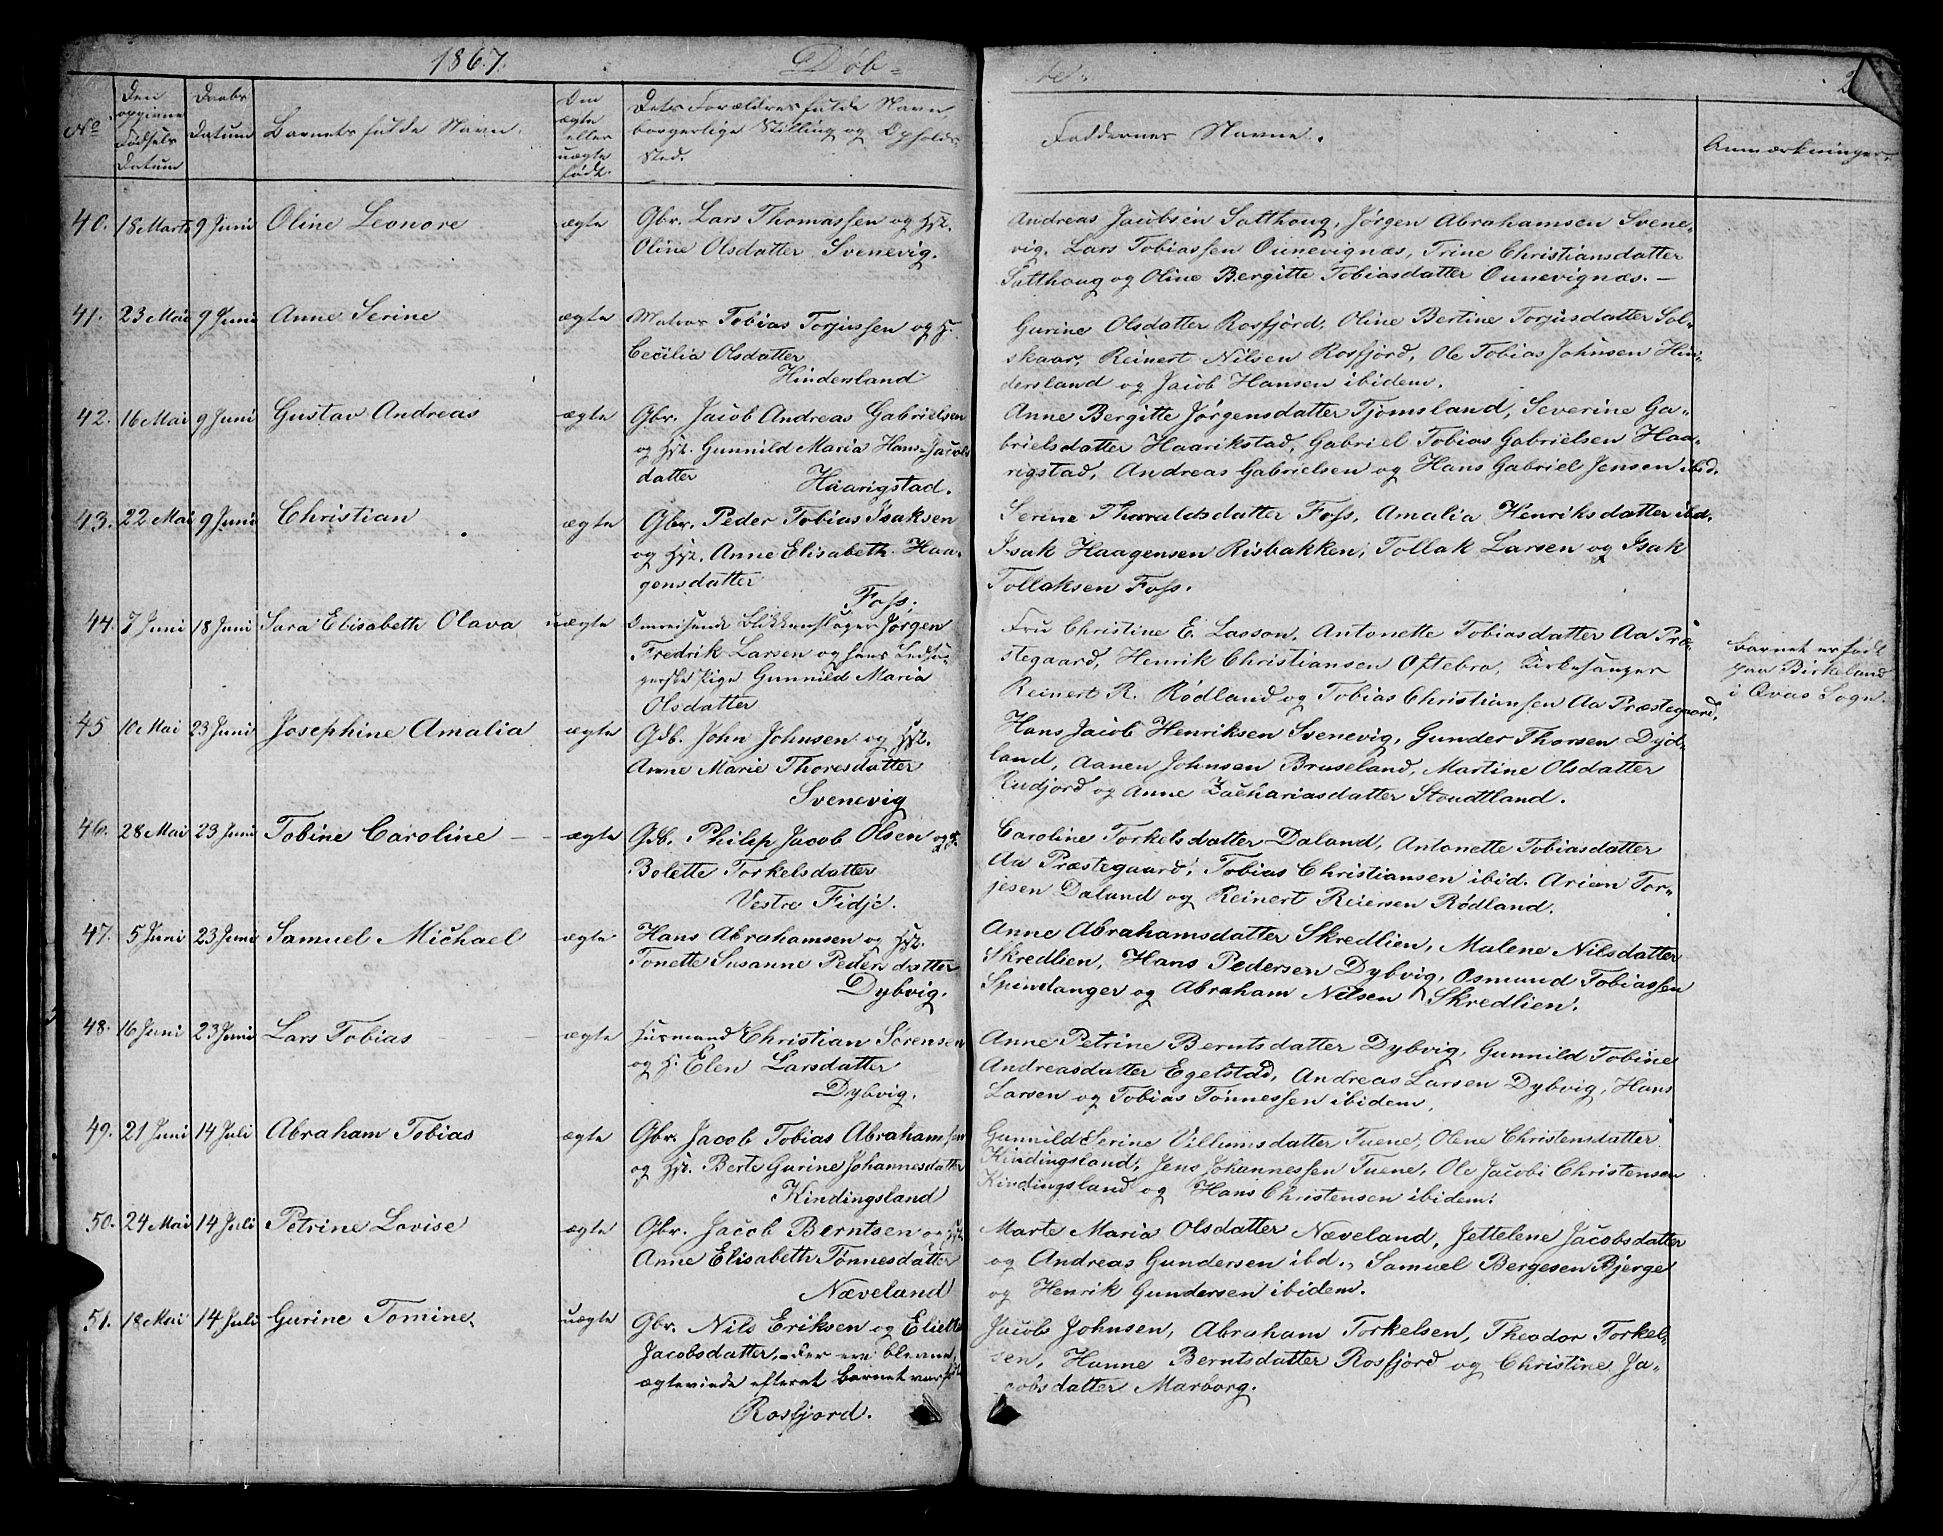 1867. Døb- te.
No
Den opgivne Fødsels Datum
Daabs Datum
Barnets fulde Navn.
Om ægte eller uægte født.
Dets Forældres fulde Navn borgerlige Stilling og Opholds-
Sted.
Faddernes Navne.
Anmærkninger.
40. 18 Marts 9 Juni Oline Leonore ægte Gbr. Lars Thomassen og Hst.
Oline Olsdatter Svenevig.
Andreas Jacobsen Satthoug, Jørgen Abrahamsen Svene-
vig, Lars Tobiassen Ounevignæs, Trine Christiansdatter
Satthoug og Oline Bergitte Tobiasdatter Ounevignæs. –
41. 23 Mai 9 Juni Anne Serine ægte Matros Tobias Torjussen og H.
Cecilia Olsdatter
Hindersland
Gurine Olsdatter Rosfjord, Oline Bertine Torjusdatter Sol-
skaar, Reinert Nilsen Rosfjord, Ole Tobias Johnsen Hin-
dersland og Jacob Hansen ibidem.
42. 16 Mai 9 Juni Gustav Andreas ægte Gbr. Jacob Andreas Gabrielsen
og Hst. Gunnild Maria Hans-Jacobs
datter Haarigstad.
Anne Bergitte Jørgensdatter Tjomsland, Severine Ga-
brielsdatter Haarikstad, Gabriel Tobias Gabrielsen Haa-
rigstad, Andreas Gabrielsen og Hans Gabriel Jensen ibid.
43. 22 Mai 9 Juni Christian ægte Gbr. Peder Tobias Isaksen
og Hst. Anne Elisabeth Haa-
gensdatter
Foss.
Serine Tharaldsdatter Foss, Amalia Henriksdatter ibd.
Isak Haagensen Risbakken, Tollak Larsen og Isak
Tollaksen Foss.
44. 7 Juni 18 Juni Sara Elisabeth Olava uægte Omreisende Blikkenslager Jørgen
Fredrik Larsen og hans Ledsa-
gerske Pige Gunnild Maria
Olsdatter
Fru Christine E. Lasson, Antonette Tobiasdatter Aa Præ-
stegaard, Henrik Christiansen Oftebro, Kirkesanger
Reinert R. Rødland og Tobias Christiansen Aa Præstegaard.
Barnet er født
paa Birkeland
i Qvas Sogn.
45 10 Mai 23 Juni Josephine Amalia ægte Gdb. John Johnsen og Hst.
Anne Marie Thoresdatter
Svenevig
Hans Jacob Henriksen Svenevig, Gunder Thorsen Dyd-
land, Aanen Johnsen Bruseland, Martine Olsdatter
Eudjord og Anne Zachariasdatter Stoudtland.
46. 28 Mai 23 Juni Tobine Caroline – ægte Gdb. Philip Jacob Olsen og H.
Bolette Torkelsdatter
Vestre Fidje.
Caroline Torkelsdatter Daland, Antonette Tobiasdatter
Aa Præstegaard, Tobias Christiansen ibid. Arien Tor-
jesen Daland og Reinert Reiersen Rødland.
47. 5 Juni 23 Juni Samuel Michael ægte Hans Abrahamsen og Hst.
Tonette Susanne Pedersdatter
Dybvig.
Anne Abrahamsdatter Skredlien, Malene Nilsdatter
Skredlien, Hans Pedersen Dybvig, Osmund Tobiassen
Spindanger og Abraham Nilsen Skredlien.
48. 16 Juni 23 Juni Lars Tobias ægte Husmand Christian Sørensen
og H. Elen Larsdatter
Dybvig.
Anne Petrine Berntsdatter Dybvig, Gunnild Tobine
Andreasdatter Egelstad, Andreas Larsen Dybvig, Hans
Larsen og Tobias Tønnessen ibidem.
49. 21 Juni 14 Juli Abraham Tobias ægte Gbr. Jacob Tobias Abrahamsen
og Hst. Berte Gurine Johannesdatter
Kindingsland
Gunnild Serine Vilhumsdatter Tuene, Olene Christensdatter
Kindingsland, Jens Johannessen Tuene, Ole Jacobi Christensen
Kindingsland og Hans Christensen ibidem.
50. 24 Mai 14 Juli Petrine Lovise ægte Gbr. Jacob Berntsen og Hst
Anne Elisabeth Tønnesdatter
Næveland
Marte Maria Olsdatter Næveland, Jettelene Jacobsdatter
og Andreas Gundersen ibd., Samuel Bergesen Bjerge
og Henrik Gundersen ibidem.
51. 18 Mai 14 Juli Gurine Tomine uægte Gbr. Nils Eriksen og Eliette
Jacobsdatter, – der ere blevne
ægteviede efterat Barnet var født
Rosfjord.
Jacob Johnsen, Abraham Torkelsen, Theodor Torkel-
sen, Hanne Berntsdatter Rosfjord og Christine Ja-
cobsdatter Marborg.